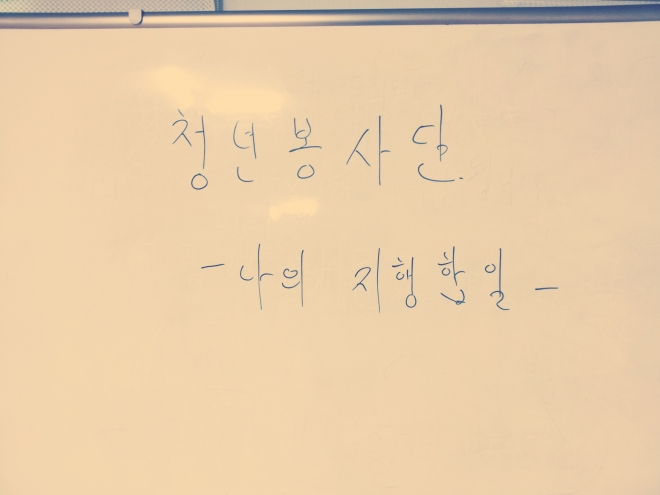 청년봉사단.
- 나의 지행합일 -